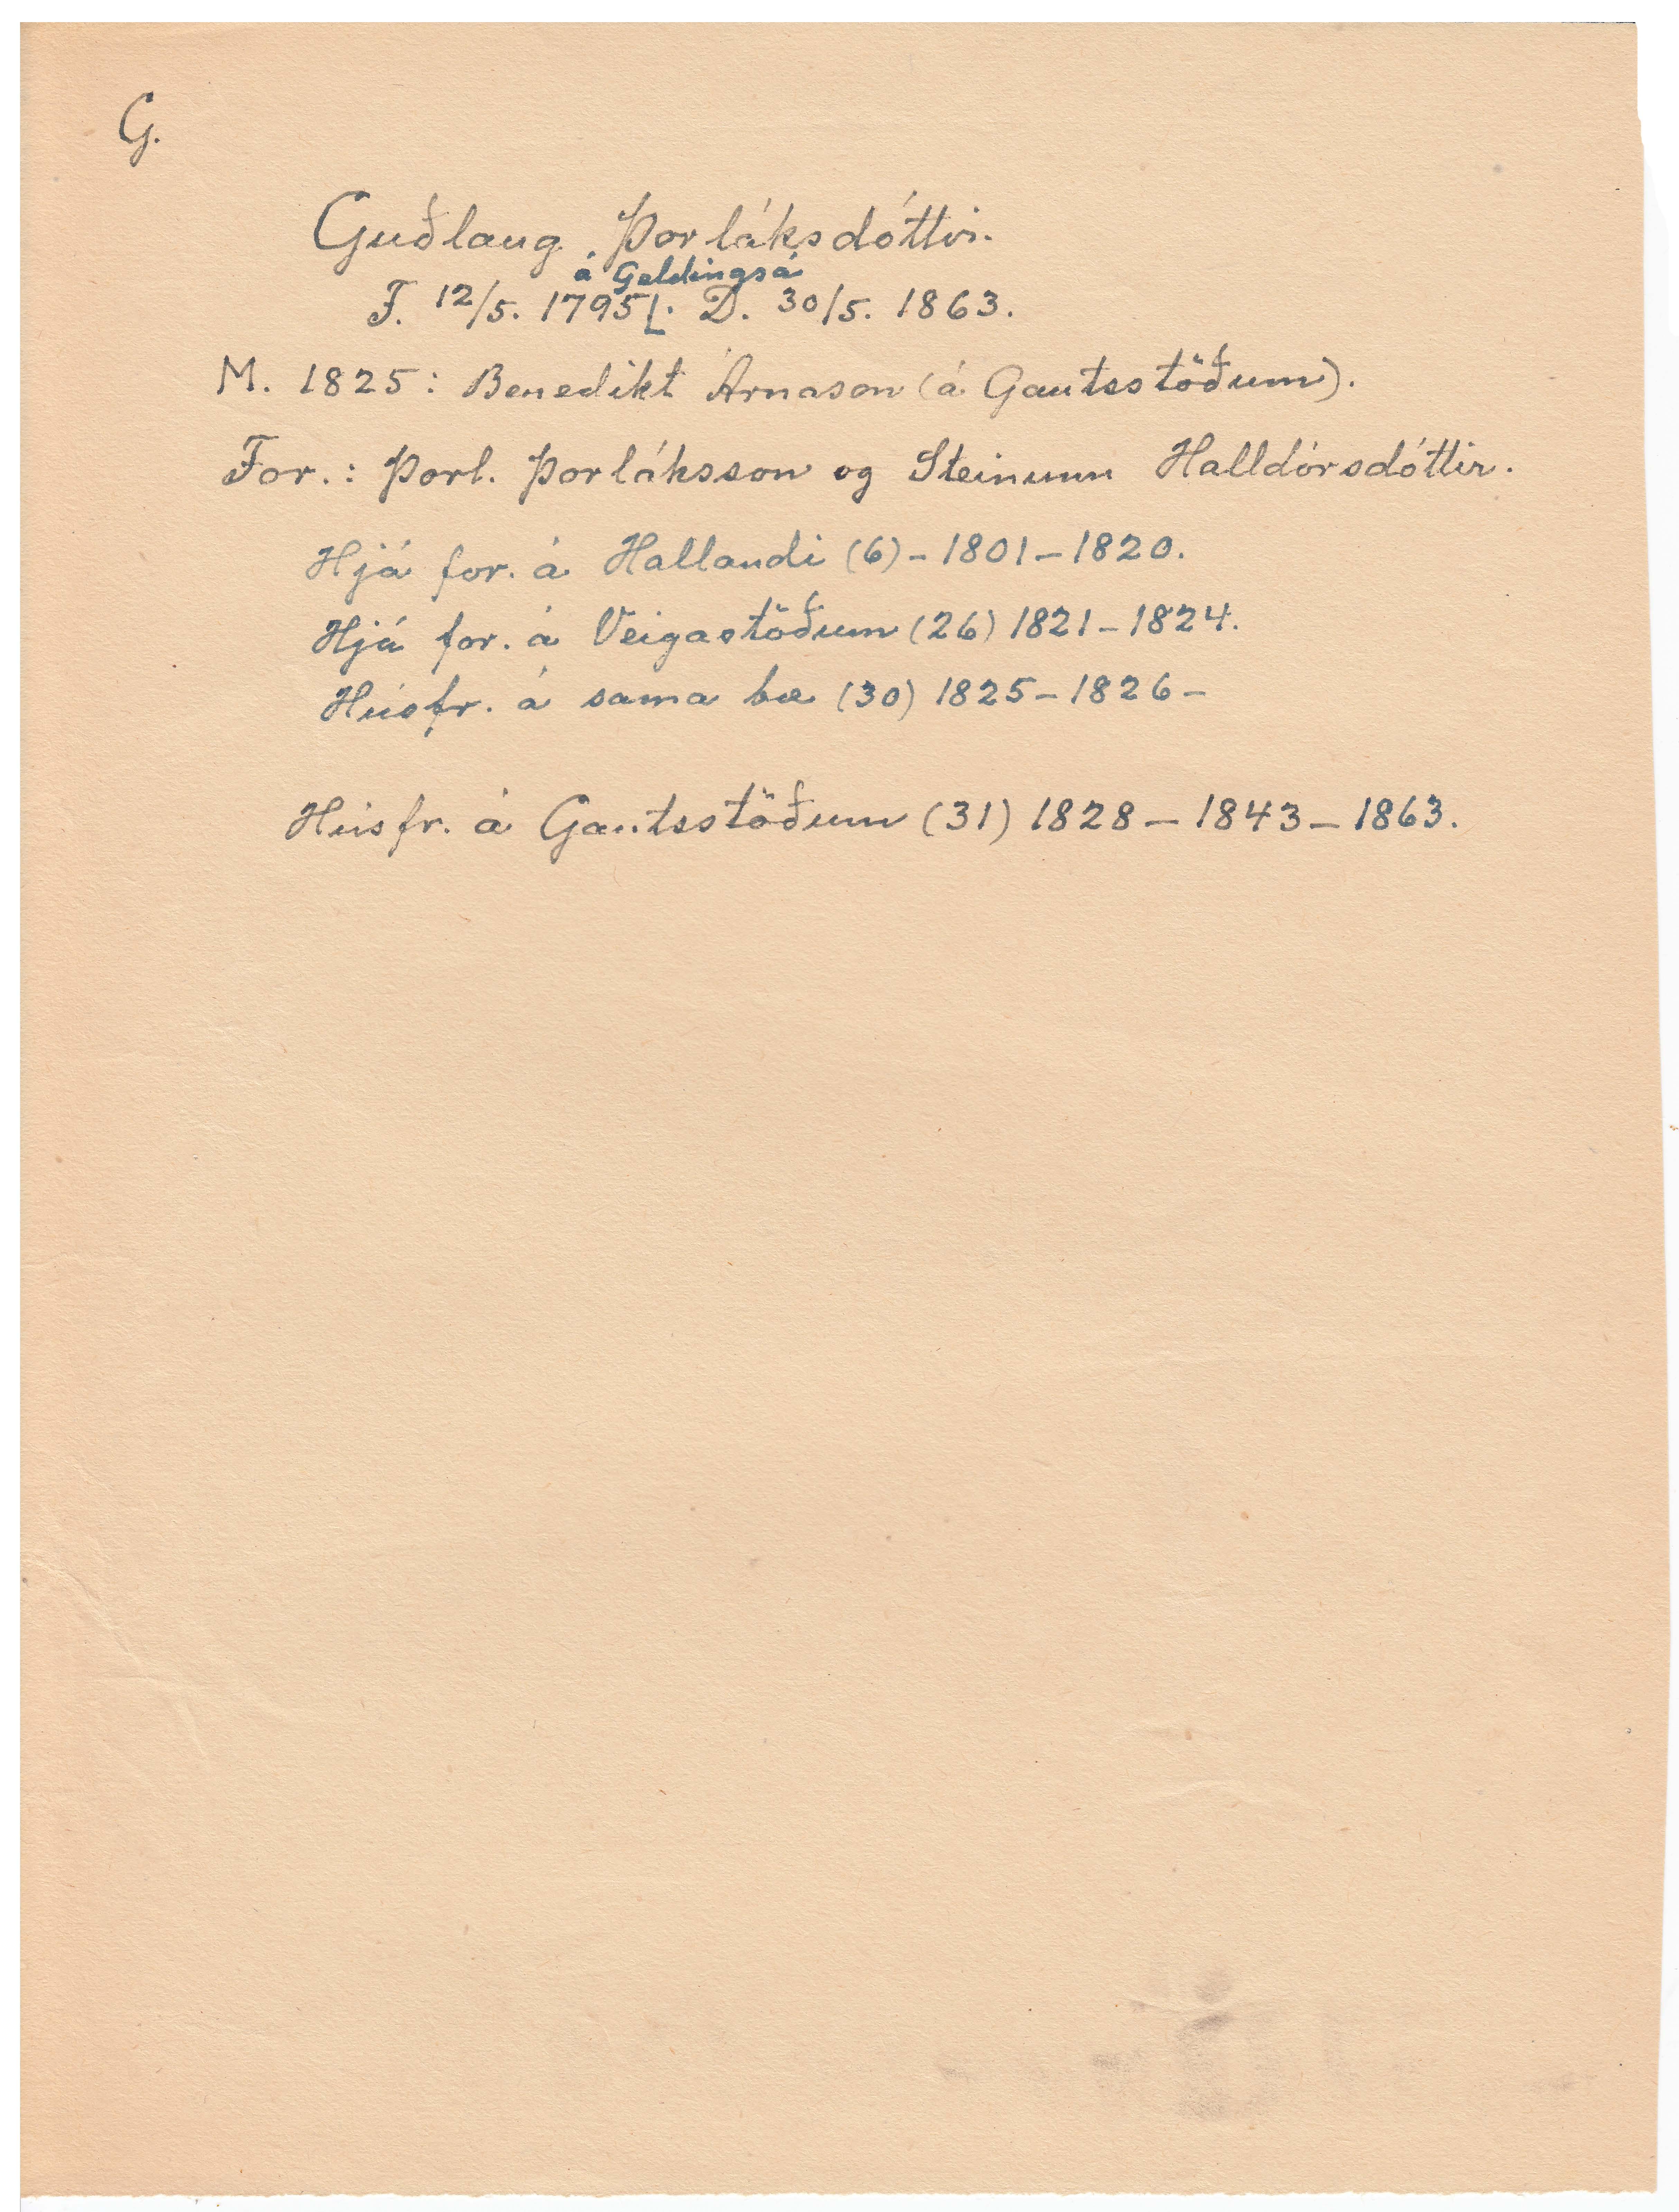 G.
Guðlaug Þorláksdóttir.
á Geldingsá
F. 12/5. 1795. D. 30/5. 1863.
M. 1825: Benedikt Árnason (á Gautsstöðum).
For.: Þorl. Þorláksson og Steinunn Halldórsdóttir.
Hjá for. á Hallandi (6) - 1801 - 1820.
Hjá for. á Veigastöðum (26) 1821 - 1824.
Húsfr. á sama bæ (30) 1825 - 1826 -
Húsfr. á Gautsstöðum (31) 1828 - 1843 - 1863.